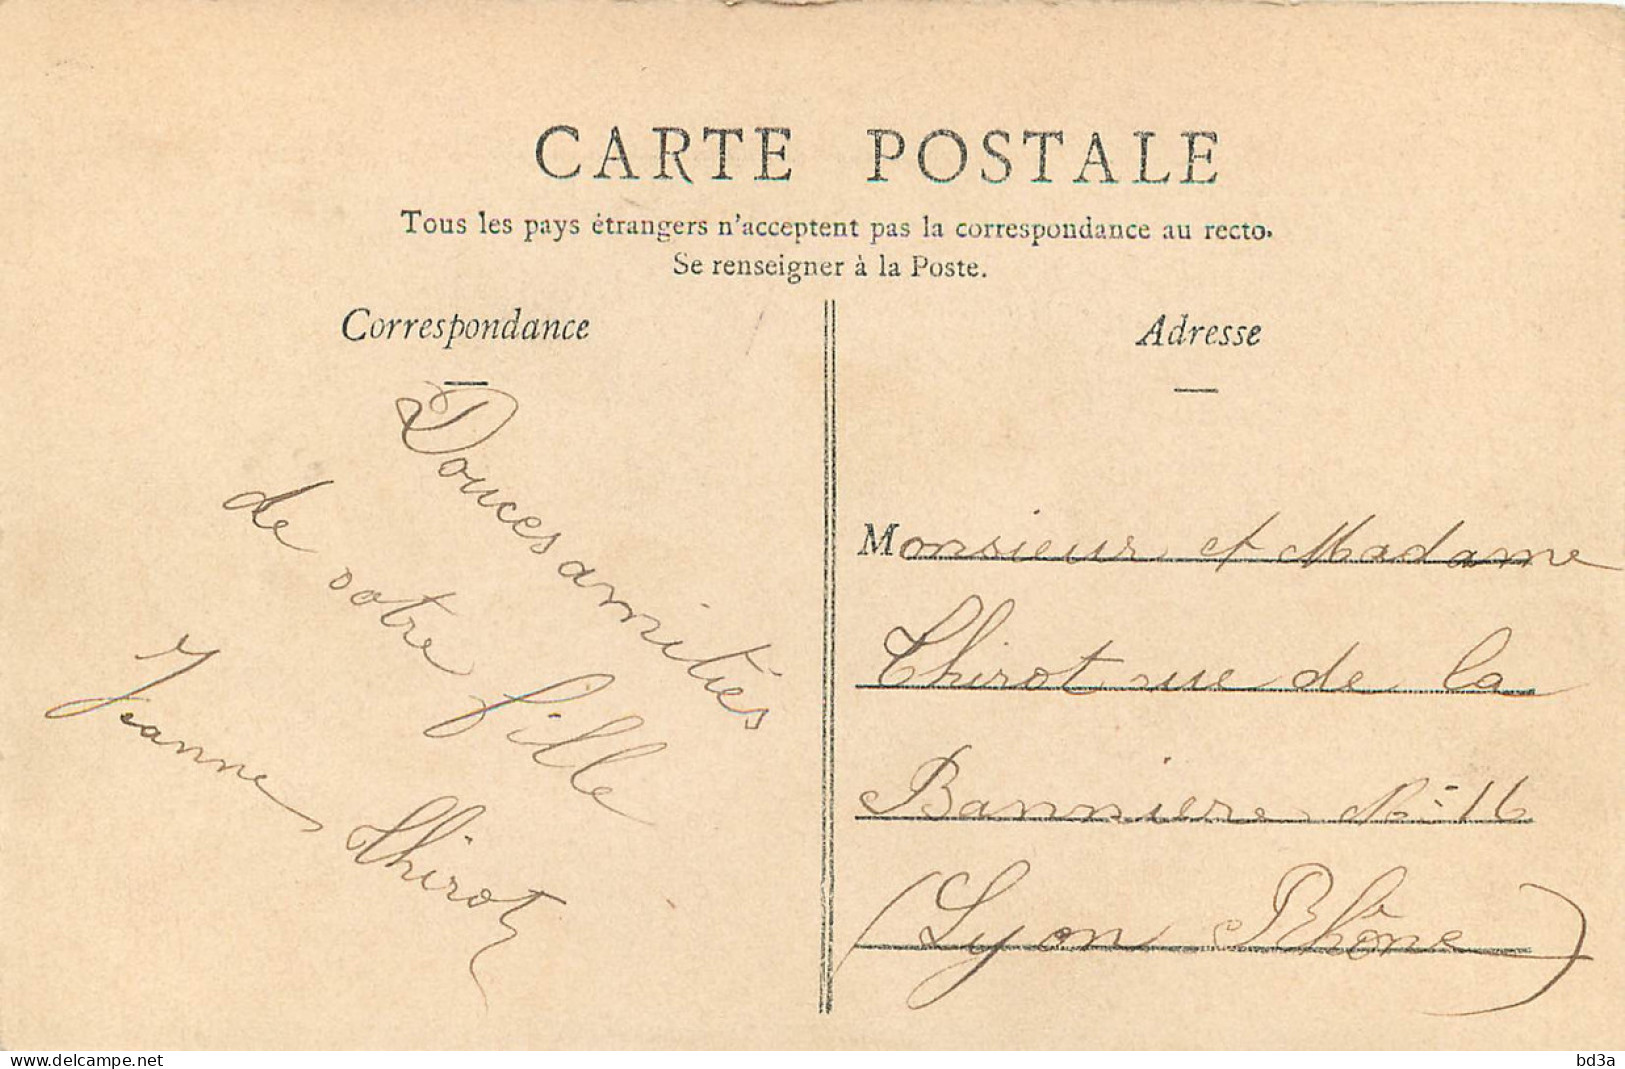 CARTE POSTALE
Tous les pays étrangers n'acceptent pas la correspondance au recto.
Se renseigner à la Poste.
Correspondance
Douces amitiés
de votre fille
Jeanne Thirot
Adresse
Monsieur et Madame
Thirot rue de la
Bannière No 16
(Lyon Rhône)
www.delcampe.net
bd3a